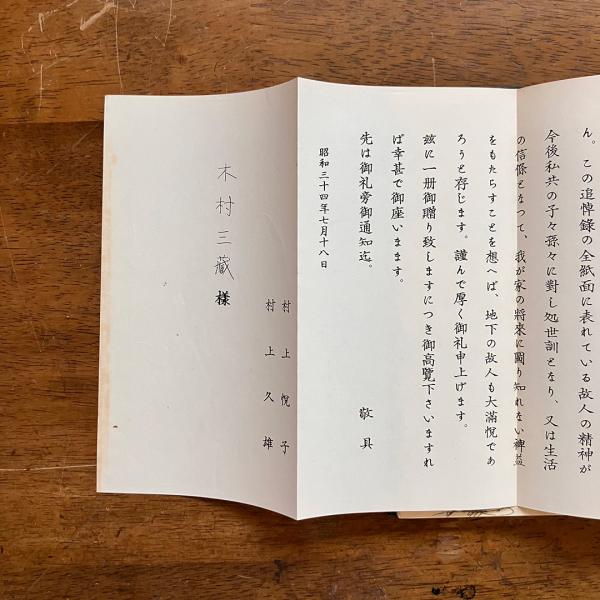 ん。この追悼録の全紙面に表れている故人の精神が
今後私共の子々孫々に對し処世訓となり、又は生活
の信條となつて、我が家の将来に圖り知れない裨益
をもたらすことを想へば、地下の故人も大滿悦であ
ろうと存じます。謹んで厚く御礼申上げます。
玆に一册御贈り致しますにつき御高覽下さいますれ
ば幸甚で御座いまます。
先は御礼旁御通知迄。
敬具
昭和三十四年七月十八日
村上悦子
村上久雄
木村三藏様